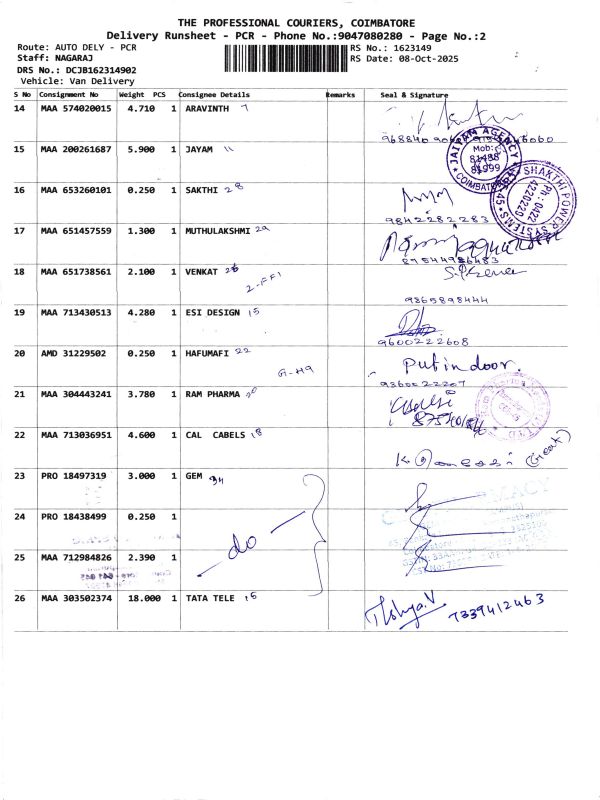 THE PROFESSIONAL COURIERS, COIMBATORE
Delivery Runsheet - PCR - Phone No.:9047080280 - Page No.:2
Route: AUTO DELY - PCR RS No.: 1623149
Staff: NAGARAJ RS Date: 08-Oct-2025
DRS No.: DCJB162314902
Vehicle: Van Delivery
S No Consignment No Weight PCS Consignee Details Remarks Seal & Signature
14 MAA 574020015 4.710 1 ARAVINTH 7
15 MAA 200261687 5.900 1 JAYAM 11
JAIRAM AGENCY
Mob:
81488
81999
COIMBATORE-45
16 MAA 653260101 0.250 1 SAKTHI 28
9842282283
SHAKTHI POWER SYSTEMS
Ph : 0422
4220220
17 MAA 651457559 1.300 1 MUTHULAKSHMI 29
87544986483
18 MAA 651738561 2.100 1 VENKAT 26
2-FF1
9865898444
19 MAA 713430513 4.280 1 ESI DESIGN 15
9600222608
20 AMD 31229502 0.250 1 HAFUMAFI 22 Put in door.
G-H9 9360022207
21 MAA 304443241 3.780 1 RAM PHARMA 20
22 MAA 713036951 4.600 1 CAL CABELS 18
23 PRO 18497319 3.000 1 GEM 34
24 PRO 18438499 0.250 1
do
25 MAA 712984826 2.390 1
26 MAA 303502374 18.000 1 TATA TELE 15
7339412463